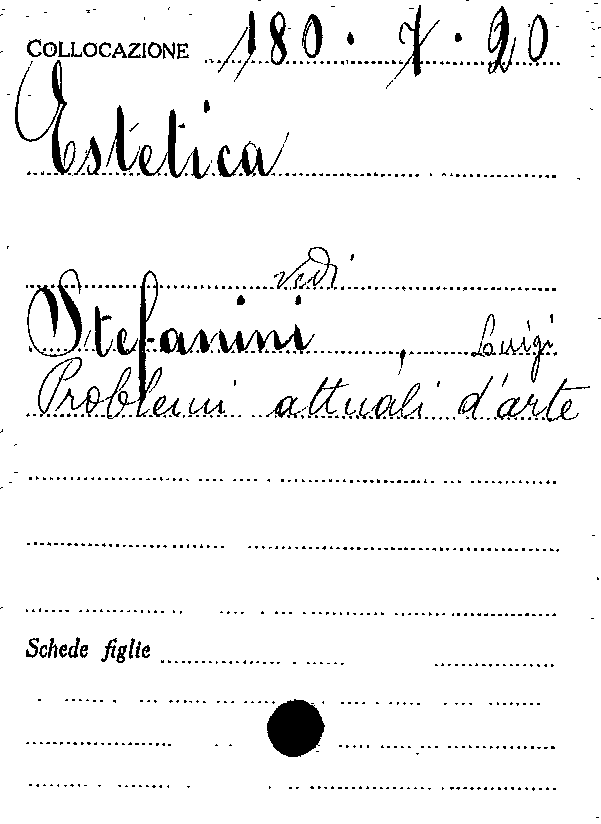 COLLOCAZIONE 180 · 7 · 20
Estetica
vedi
Stefanini, Luigi
Problemi attuali d'arte
Schede figlie